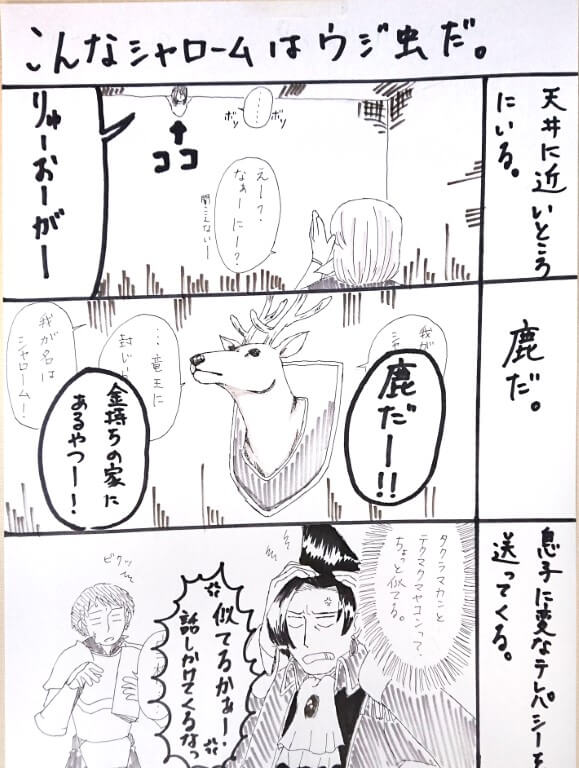 こんなシャロームはウジ虫だ。
天井に近いところ
にいる。
ボソ
……
ボソ
ココ
りゅーおーがー
えー？
なぁーにー？
聞こえないー
鹿だ。
我が
シャ
鹿だー!!
…竜王に
封じ
我が名は
シャローム！
金持ちの家に
あるやつー！
息子に変なテレパシーを
送ってくる。
タクラマカンと
テクマクマヤコンって、
ちょっと似てる。
似てるかぁー！
話しかけてくるなっ
ビクッ